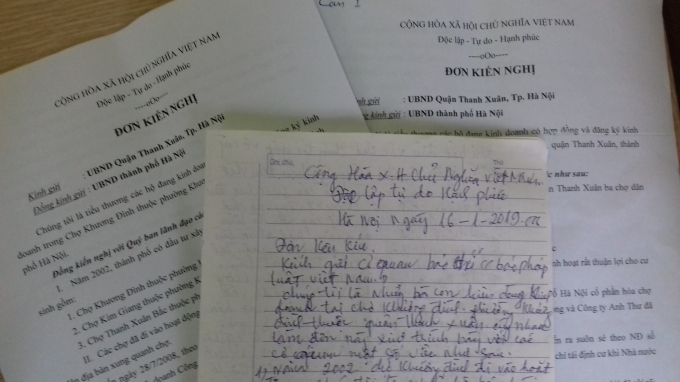 CỘNG HÒA XÃ HỘI CHỦ NGHĨA VIỆT NAM
Độc lập - Tự do - Hạnh phúc
----oOo----
ĐƠN KIẾN NGHỊ
Kính gửi : UBND Quận Thanh Xuân, Tp. Hà Nội
Đồng kính gửi : UBND thành phố Hà Nội
Chúng tôi là tiểu thương các hộ đang kinh doanh
doanh trong Chợ Khương Đình thuộc phường Khương
phố Hà Nội.
Đồng kiến nghị với Quý ban lãnh đạo các
I. Năm 2002, thành phố có đầu tư xây
sinh gồm:
1. Chợ Khương Đình thuộc phường
2. Chợ Kim Giang thuộc phường
3. Chợ Thanh Xuân Bắc thuộc
II. Các chợ đã đi vào hoạt động
trên địa bàn xung quanh chợ.
Đến ngày 28/7/2008, theo
Lần 1
CỘNG HÒA XÃ HỘI CHỦ NGHĨA VIỆT NAM
Độc lập - Tự do - Hạnh phúc
----oOo----
ĐƠN KIẾN NGHỊ
: UBND Quận Thanh Xuân, Tp. Hà Nội
: UBND thành phố Hà Nội
tiểu thương các hộ đang kinh doanh có hợp đồng và đăng ký kinh
quận Thanh Xuân, thành
như sau:
Thanh Xuân ba chợ dân
sinh hoạt rất thuận lợi cho cư
Hà Nội cổ phần hóa chợ
và Công ty Anh Thư đã
ra suôn sẻ theo NĐ số
chí tái định cư khi Nhà nước
Cộng Hòa X.H Chủ Nghĩa Việt Nam
Độc lập tự do Hạnh phúc
Hà Nội Ngày 16-1-2019
Đơn Kêu Cứu.
Kính gửi cơ quan báo chí cơ báo pháp
luật việt Nam
chúng tôi là những bà con tiểu thương kinh
doanh tại chợ Khương đình phường Khương
đình thuộc quận thanh xuân cùng nhau
làm đơn này xin trình bày với các
cơ quan một số việc như sau.
1) Năm 2002 chợ Khương đình đi vào hoạt